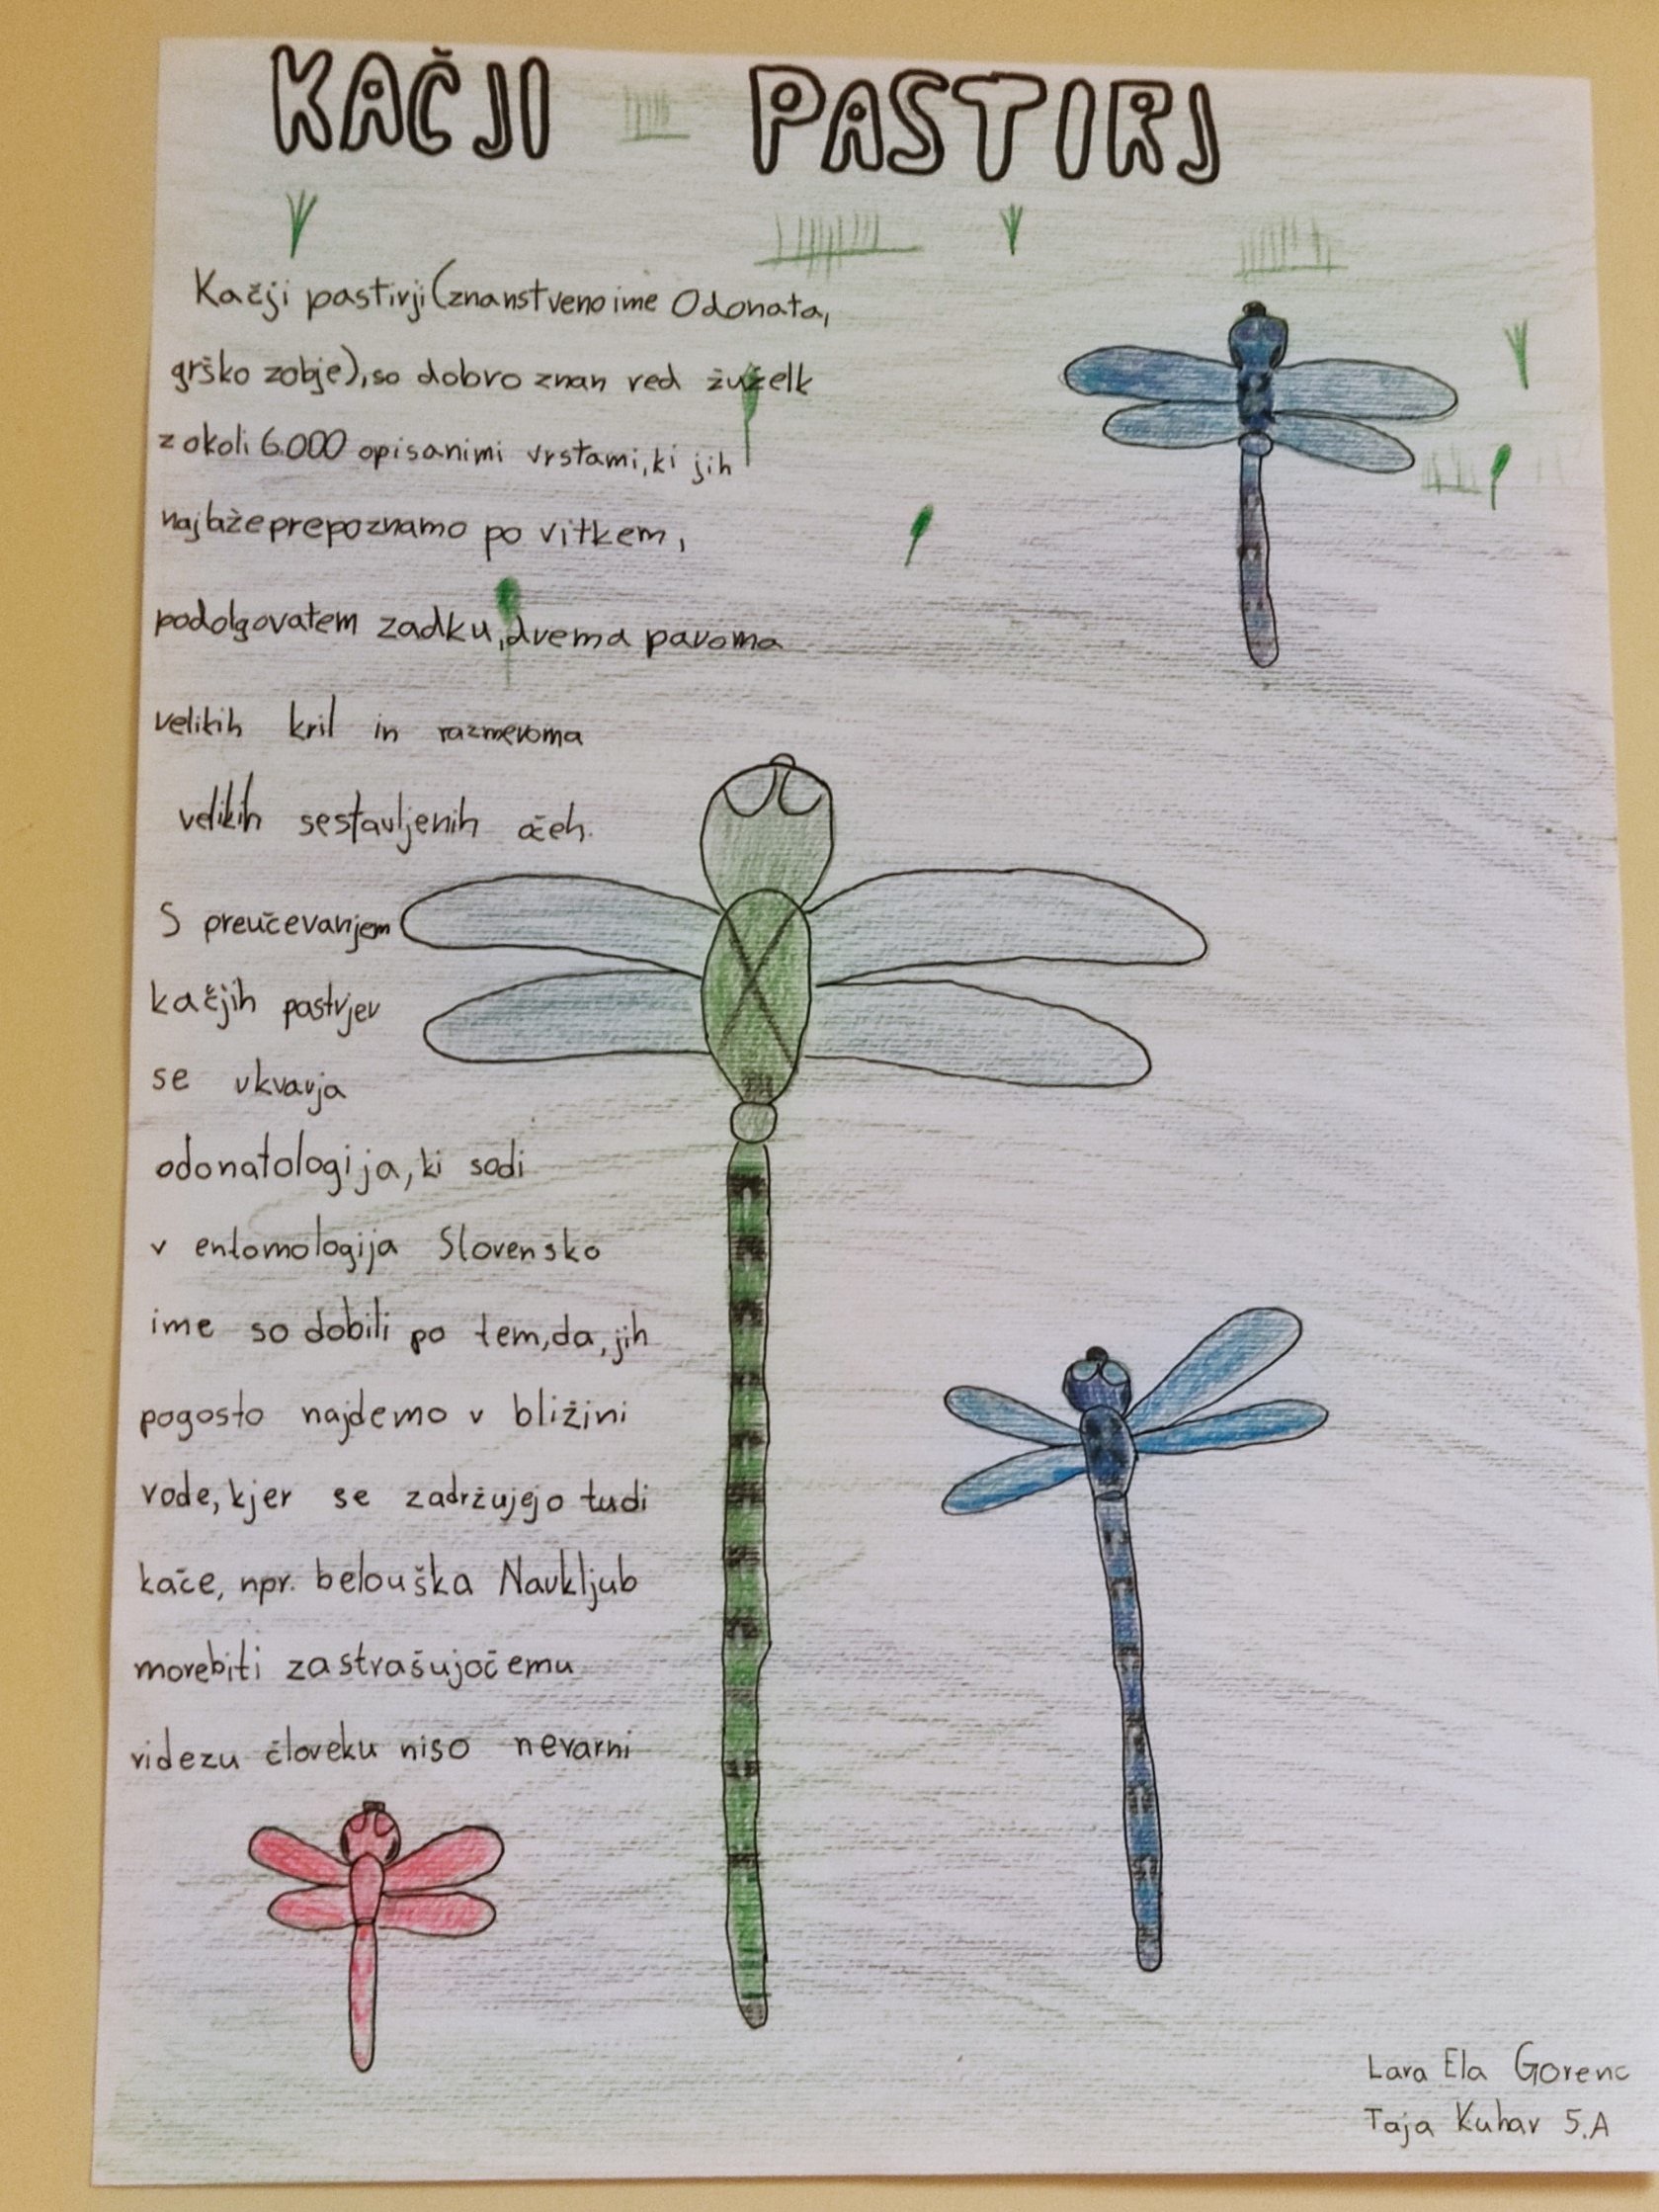 KAČJI PASTIRJ
Kačji pastirji (znanstveno ime Odonata,
grško zobje), so dobro znan red žuželk
z okoli 6.000 opisanimi vrstami, ki jih
najlaže prepoznamo po vitkem,
podolgovatem zadku, dvema paroma
velikih kril in razmeroma
velikih sestavljenih očeh.
S preučevanjem
kačjih pastrjev
se ukvarja
odonatologija, ki sodi
v entomologija Slovensko
ime so dobili po tem, da, jih
pogosto najdemo v bližini
vode, kjer se zadržujejo tudi
kače, npr. belouška Navkljub
morebiti zastrašujočemu
videzu človeku niso nevarni
Lara Ela Gorenc
Taja Kuhar 5.A